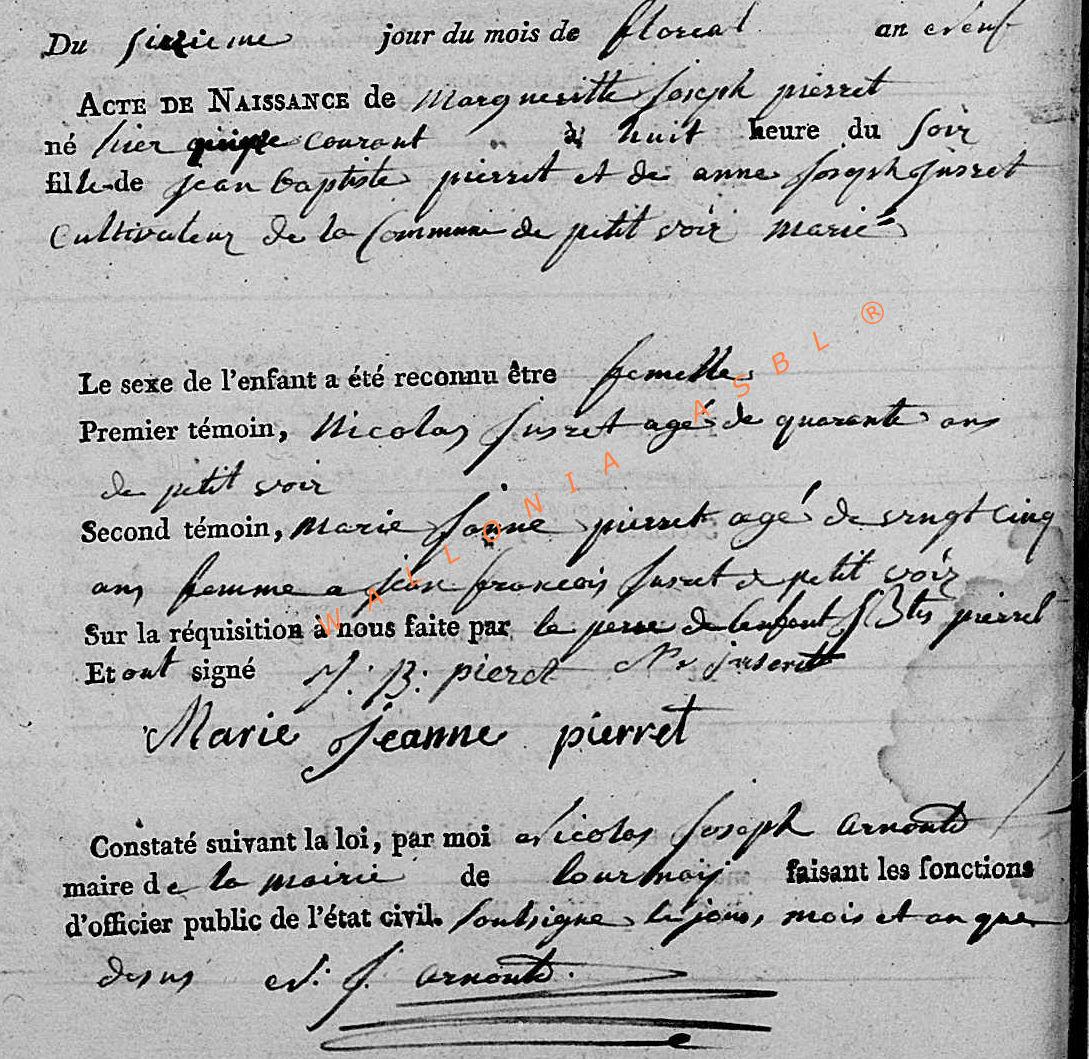 Du sizieme jour du mois de floreal an neuf
ACTE DE NAISSANCE de Margueritte Joseph pierret
né hier courant à huit heure du soir
fille de jean baptiste pierret et de anne Joseph Jusret
Cultivateur de la Commune de petit voir marié
Le sexe de l'enfant a été reconnu être femelle
Premier témoin, Nicolas Jusret agé de quarante ans
de petit voir
Second témoin, Marie Janne pierret agé de vingt cinq
ans femme a jean francois Jusret de petit voir
Sur la réquisition à nous faite par le perre de lenfant J Btis pierret
Et ont signé J. B: pieret
Marie Jeanne pierret
Constaté suivant la loi, par moi Nicolas Joseph Arnould
maire de la mairie de tournay faisant les fonctions
d'officier public de l'état civil. soubsigne le jour, mois et an que
desus N. J. Arnould.
WALLONIA ASBL ®